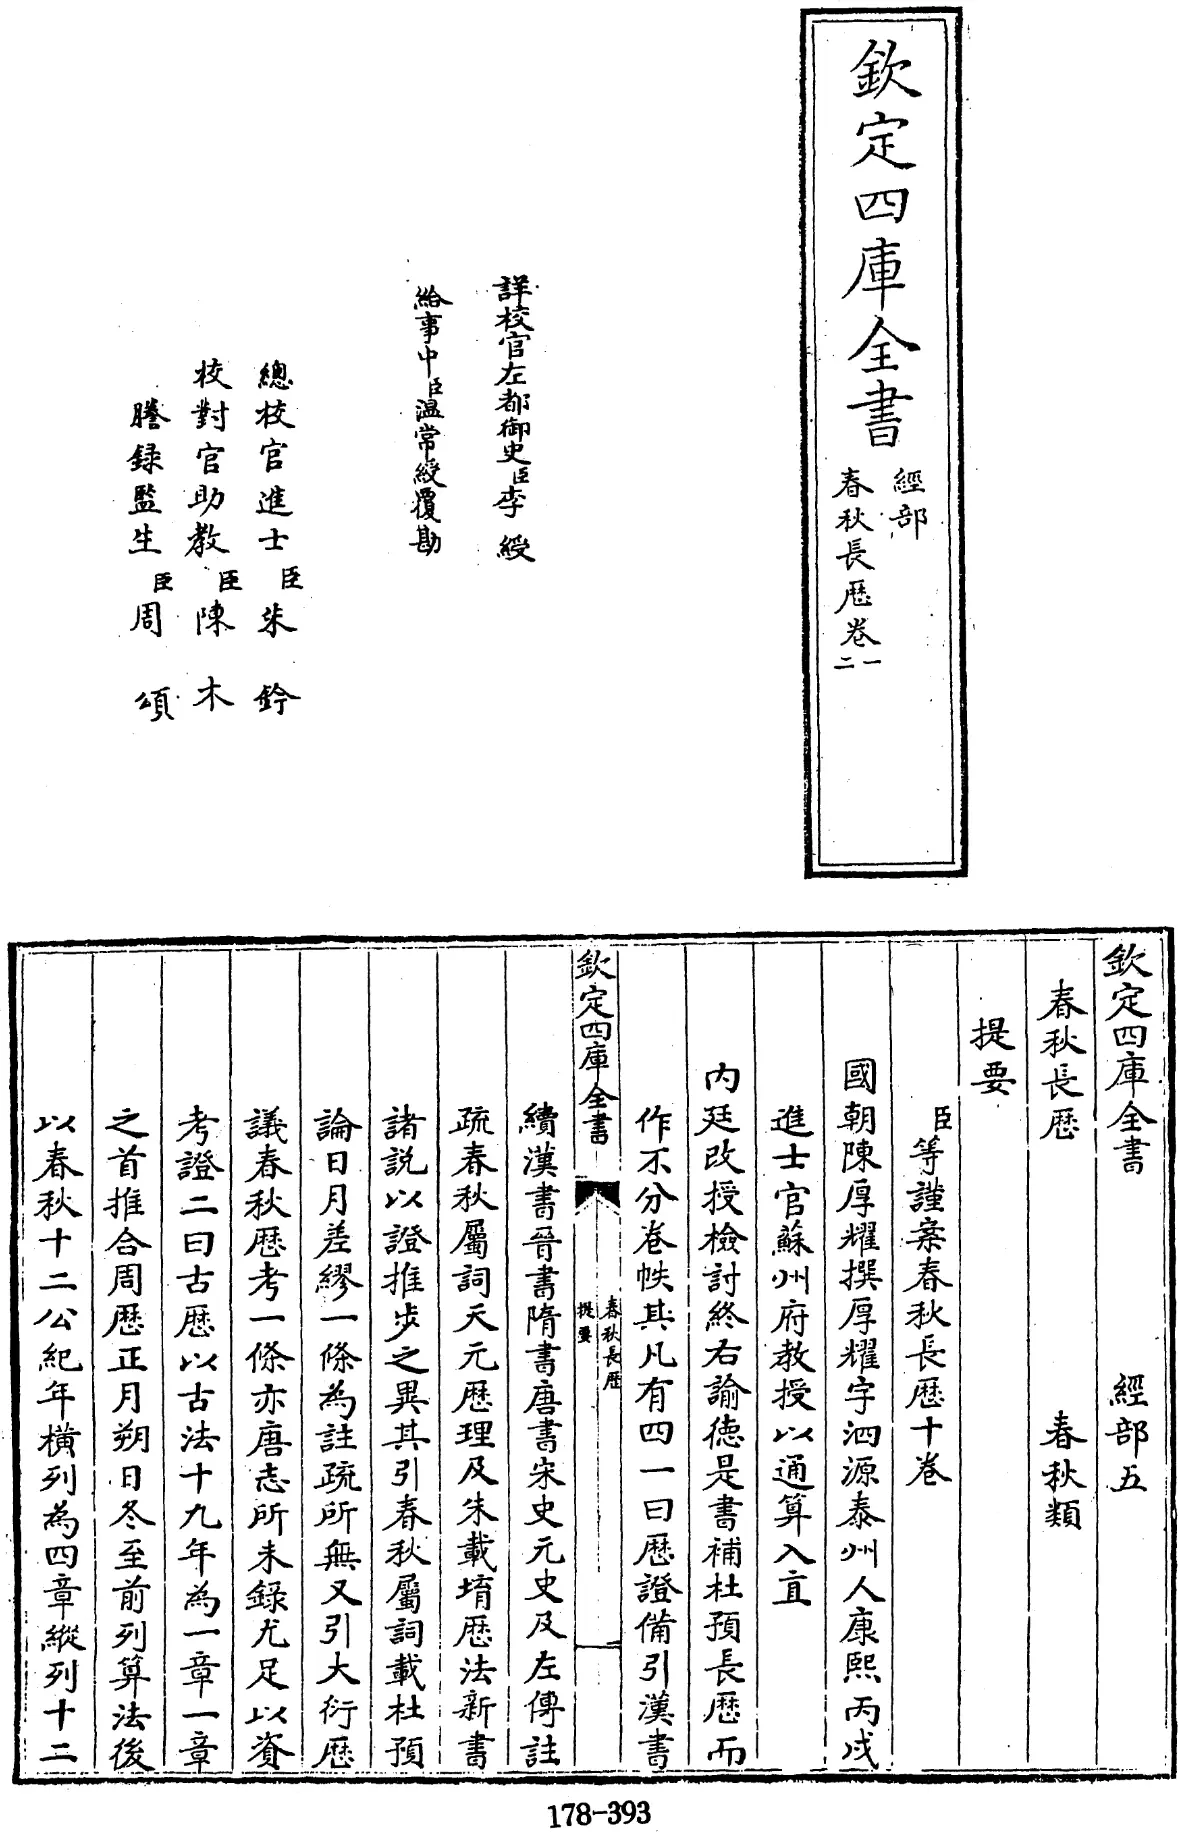 欽定四庫全書
經部
春秋長厯卷一
二
詳校官左都御史臣李綬
給事中臣温常綬覆勘
總校官進士臣朱鈐
校對官助教臣陳木
謄録監生臣周頌
欽定四庫全書 經部五
春秋長厯 春秋類
提要
臣等謹案春秋長厯十卷
國朝陳厚耀撰厚耀字泗源泰州人康熙丙戌
進士官蘇州府教授以通算入直
内廷改授檢討終右諭徳是書補杜預長厯而
作不分卷帙其凡有四一曰厯證備引漢書
欽定四庫全書
春秋長厯
提要
續漢書晉書隋書唐書宋史元史及左傳註
疏春秋屬詞天元厯理及朱載堉厯法新書
諸説以證推步之異其引春秋屬詞載杜預
論日月差繆一條為註疏所無又引大衍厯
議春秋厯考一條亦唐志所未録尤足以資
考證二曰古厯以古法十九年為一章一章
之首推合周厯正月朔日冬至前列算法後
以春秋十二公紀年横列為四章縱列十二
178-393